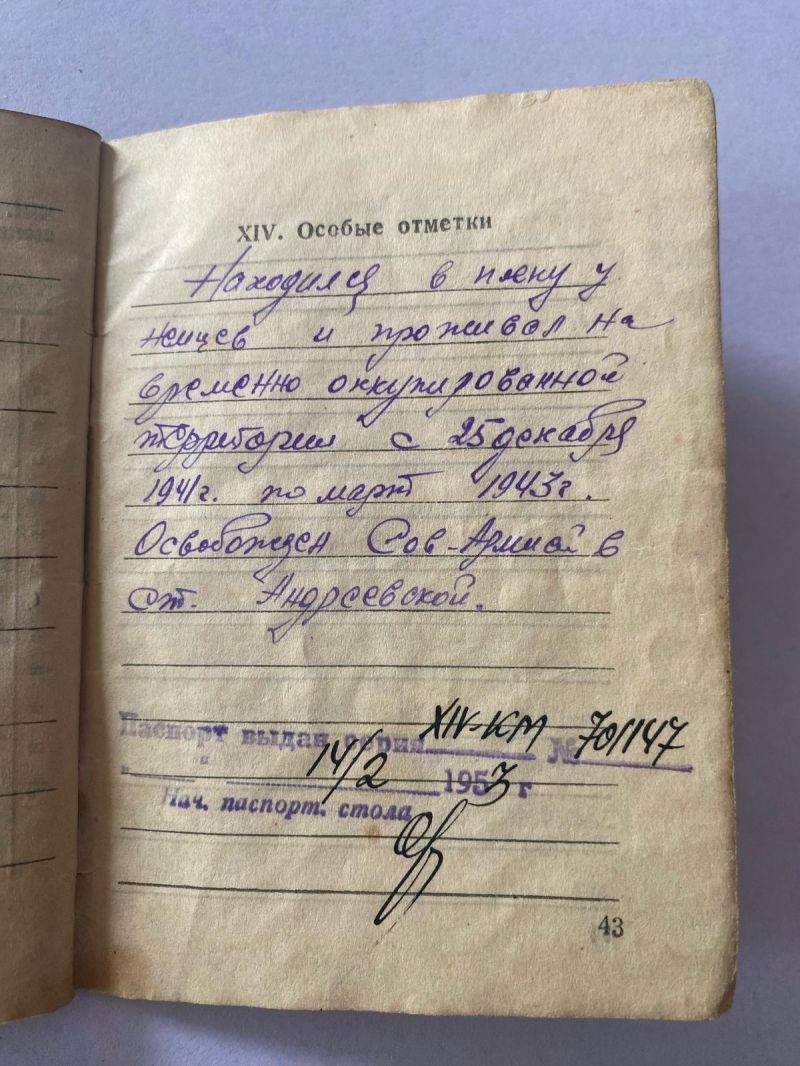 XIV. Особые отметки
Находился в плену у
немцев и проживал на
временно оккупированной
территории с 25 декабря
1941г. по март 1943г.
Освобожден Сов-Армией в
ст. Андреевской.
Паспорт выдан серия XIV-КМ № 701147
" " 14/2 1953 г
Нач. паспорт. стола
43